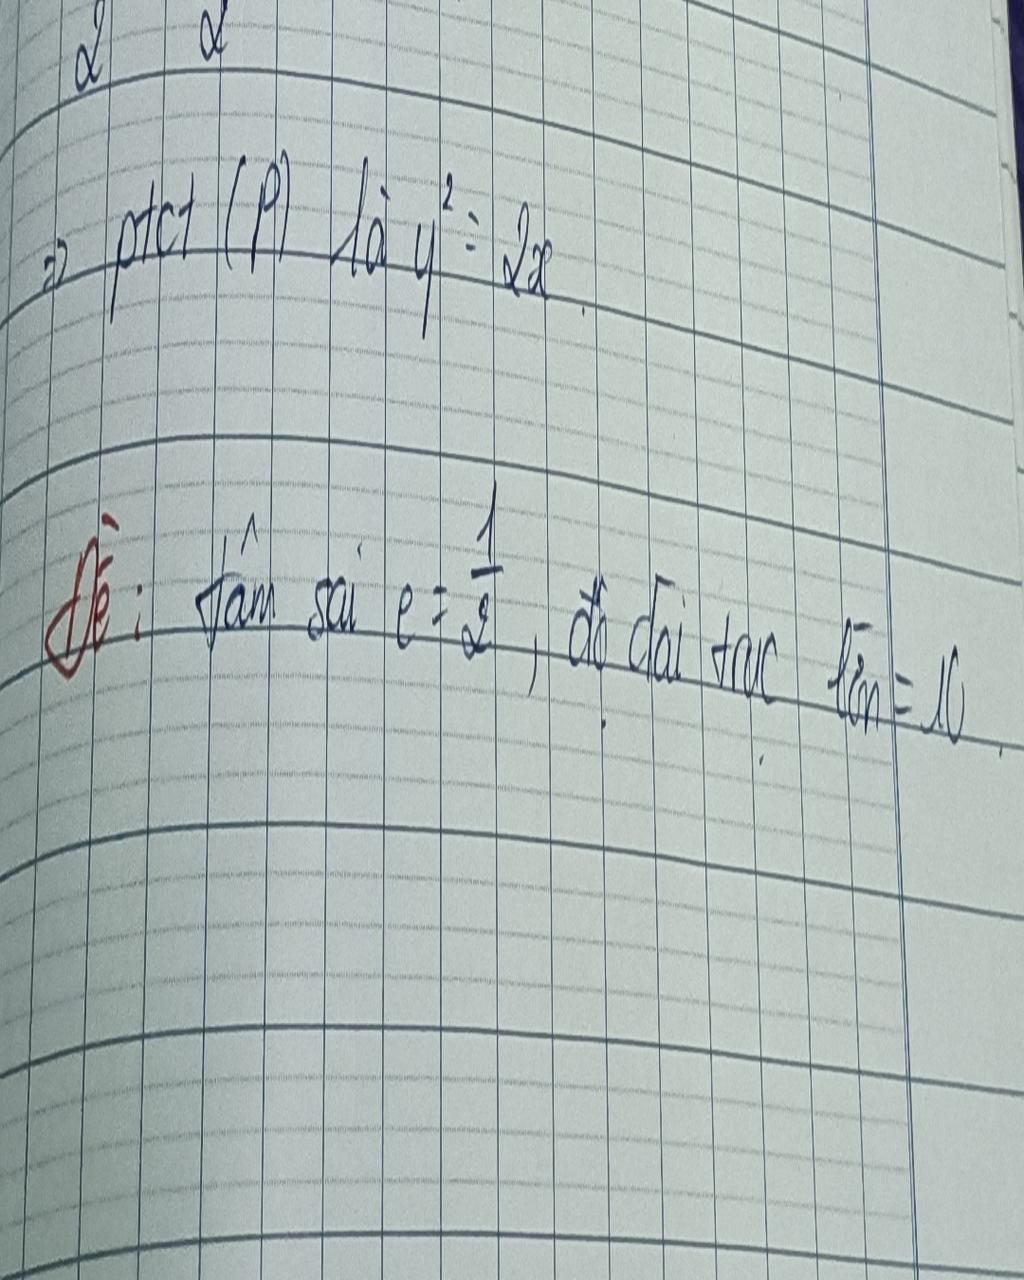 2 2
⇒ ptct (P) là y² = 2x.
Đề: tâm sai e = 1/2, độ dài trục lớn = 10.